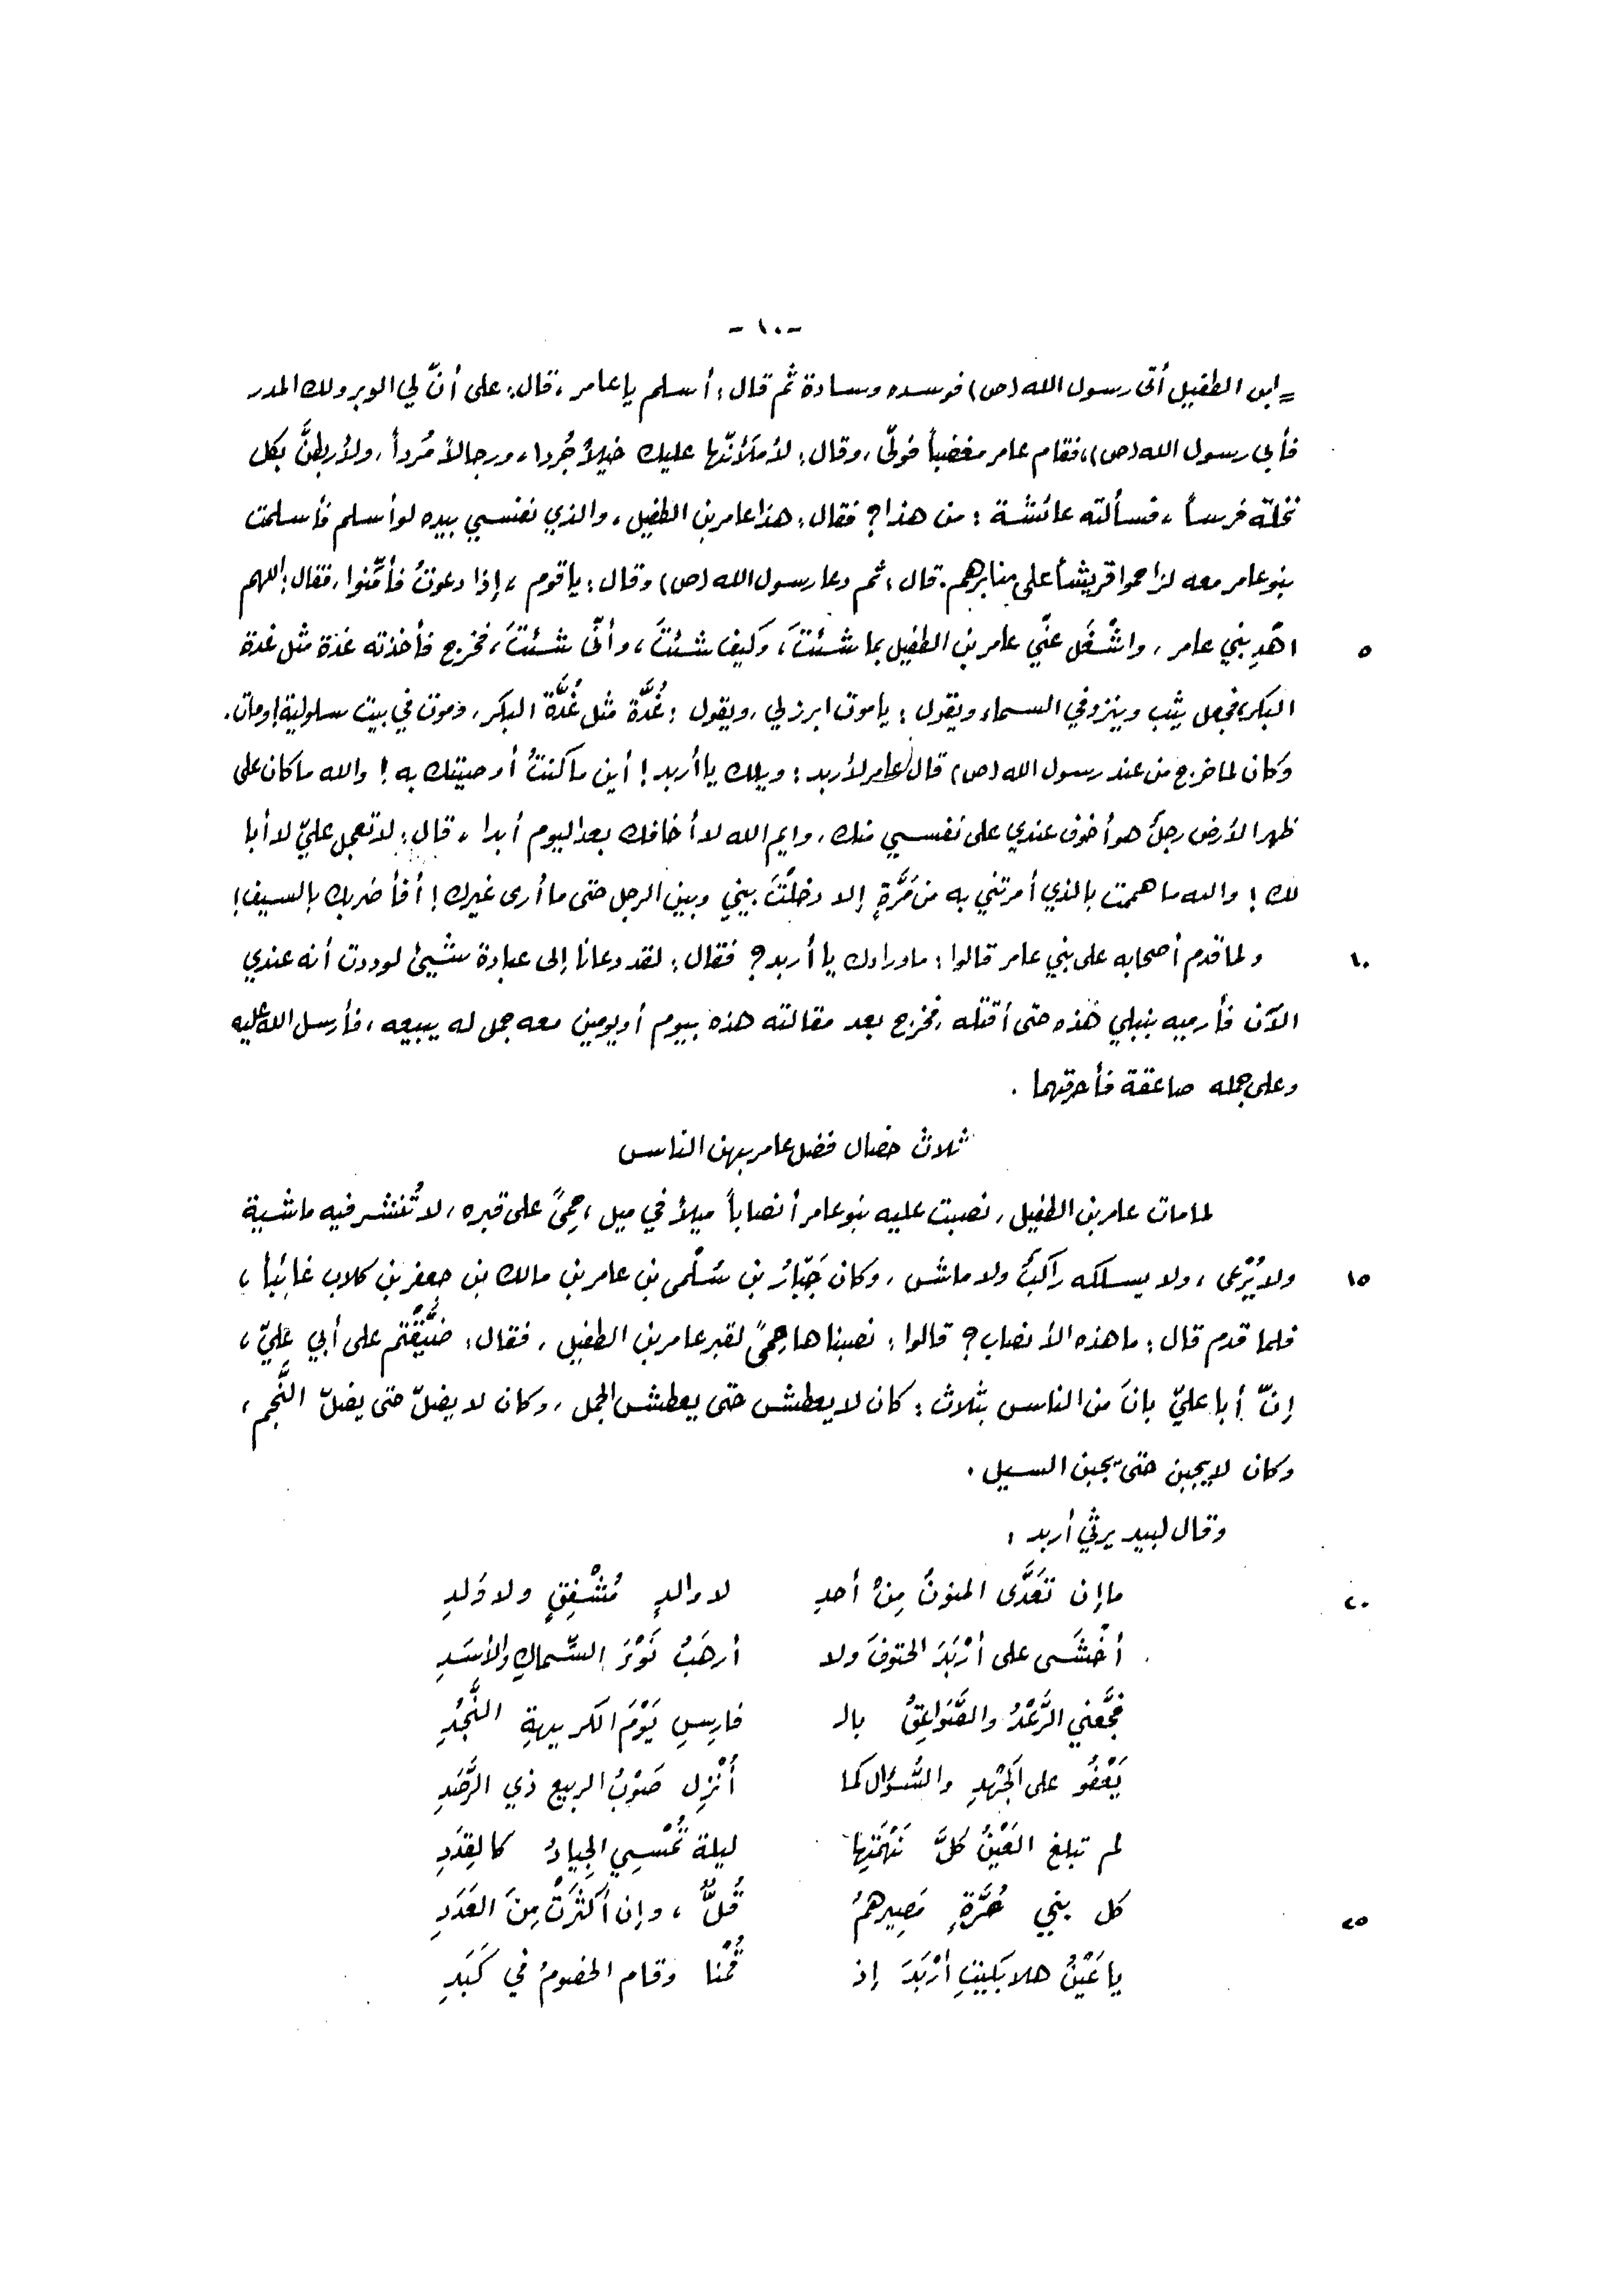 - ١٠ -
= ابن الطفيل أتى رسول الله (ص) فوسده وسادة ثم قال: أسلم يا عامر، قال: على أنّ لي الوبر ولك المدر
فأبى رسول الله (ص)، فقام عامر مغضباً فولّى، وقال: لأملأنّها عليك خيلاً جُردا، ورجالاً مُرداً، ولأربطنَّ بكل
نخلة فرساً، فسألته عائشة: من هذا؟ فقال: هذا عامر بن الطفيل، والذي نفسي بيده لو أسلم فأسلمت
بنو عامر معه لزاحموا قريشاً على منابرهم. قال: ثم دعا رسول الله (ص) وقال: يا قوم، إذا دعوتُ فأمِّنوا، فقال: اللهم
٥ اهْدِ بني عامر، واشْغَل عنّي عامر بن الطفيل بما شئتَ، وكيف شئتَ، وأنّى شئتَ، فخرج فأخذته غدة مثل غدة
البكر، فجعل يثب وينزو في السماء ويقول: يا موت ابرز لي، ويقول: غُدَّة مثل غُدَّة البكر، وموت في بيت سلولية! ومات.
وكان لما خرج من عند رسول الله (ص) قال عامر لأربد: ويلك يا أربد! أين ما كنتُ أوصيتك به! والله ما كان على
ظهر الأرض رجلٌ هو أخوف عندي على نفسي منك، وايم الله لا أخافك بعد اليوم أبدا، قال: لا تعجل عليّ لا أبا
لك! والله ما هممت بالذي أمرتني به من مَرَّةٍ إلا دخلْتَ بيني وبين الرجل حتى ما أرى غيرك! أفأضربك بالسيف!
١٠ ولما قدم أصحابه على بني عامر قالوا: ما وراءك يا أربد؟ فقال: لقد دعانا إلى عبادة شيئ لوددت أنه عندي
الآن فأرميه بنبلي هذه حتى أقتله، فخرج بعد مقالته هذه بيوم أو يومين معه جمل له يبيعه، فأرسل الله عليه
وعلى جمله صاعقة فأحرقتهما.
ثلاث خصال فضل عامر بهن الناس
لما مات عامر بن الطفيل، نصبت عليه بنو عامر أنصاباً ميلاً في ميل، حِمىً على قبره، لا تُنشر فيه ماشية
١٥ ولا يُرْعى، ولا يسلكه راكبٌ ولا ماش، وكان جَبّارُ بن سُلْمى بن عامر بن مالك بن جعفر بن كلاب غائباً،
فلما قدم قال: ما هذه الأنصاب؟ قالوا: نصبناها حِمىً لقبر عامر بن الطفيل، فقال: ضَيَّقْتُم على أبي عليّ،
إنّ أبا عليّ بانَ من الناس بثلاث: كان لا يعطش حتى يعطش الجمل، وكان لا يضلّ حتى يضلّ النَّجم،
وكان لا يجبن حتى يجبن السيل.
وقال لبيد يرثي أربد:
٢٠ ما إن تَعَدَّى المنونُ مِنْ أحدِ لا والدٍ مُشْفِقٍ ولا وَلدِ
أخْشَى على أرْبَدَ الحتوفَ ولا أرهَبُ نَوْءَ السِّماكِ والأسَدِ
فجَّعني الرَّعْدُ والصَّوَاعِقُ بالـ فارِسِ يَوْمَ الكريهةِ النَّجُدِ
يَعْفُو على الجَهْدِ والسُّؤال كما أُنْزِل صَوْبُ الربيع ذي الرَّصَدِ
لم تبلغ العَيْنُ كلَّ نَهْمَتِها ليلة تُمْسِي الجِيادُ كالقِدَدِ
كل بني حُرَّةٍ مَصِيرهمُ قُلٌّ، وإن أكثرَتْ مِنَ العَدَدِ
٢٥ يا عَيْنُ هلا بَكيْتِ أرْبَدَ إذ قُمْنا وقام الخصومُ في كَبَدِ